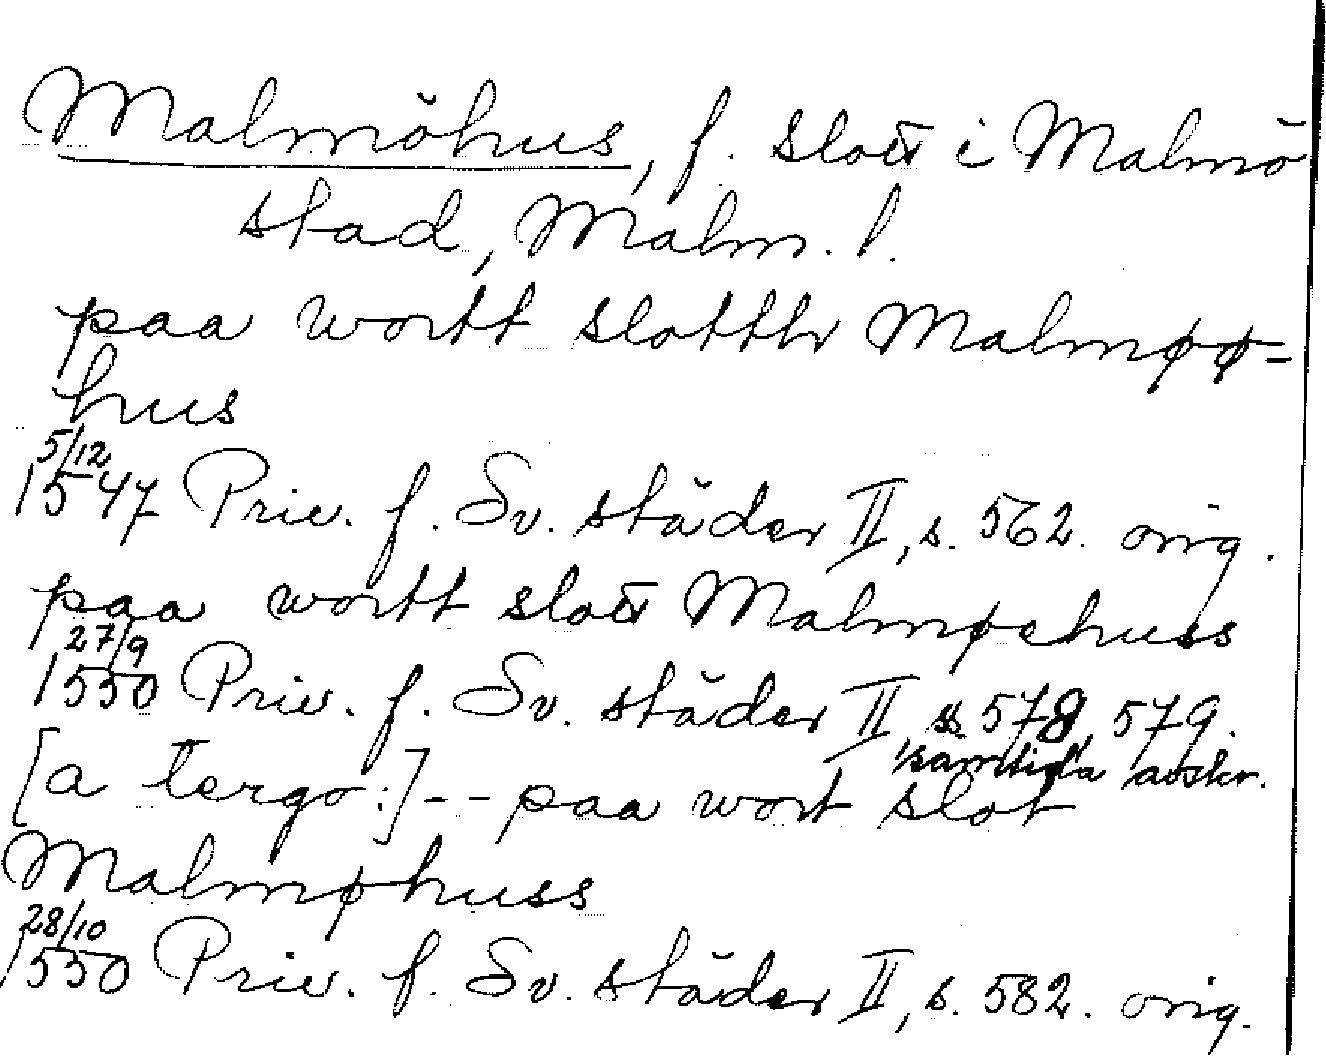 Malmöhus, f. slott i Malmö
stad, Malm. l.
paa wortt slotth Malmøø-
hus
5/12
1547 Priv. f. Sv. städer II, s. 562. orig.
paa wortt slott Malmøehuss
27/9
1550 Priv. f. Sv. städer II, s. 578, 579.
samtida avskr.
[a tergo:] - - paa wort slot
Malmøhuss
28/10
1550 Priv. f. Sv. städer II, s. 582. orig.